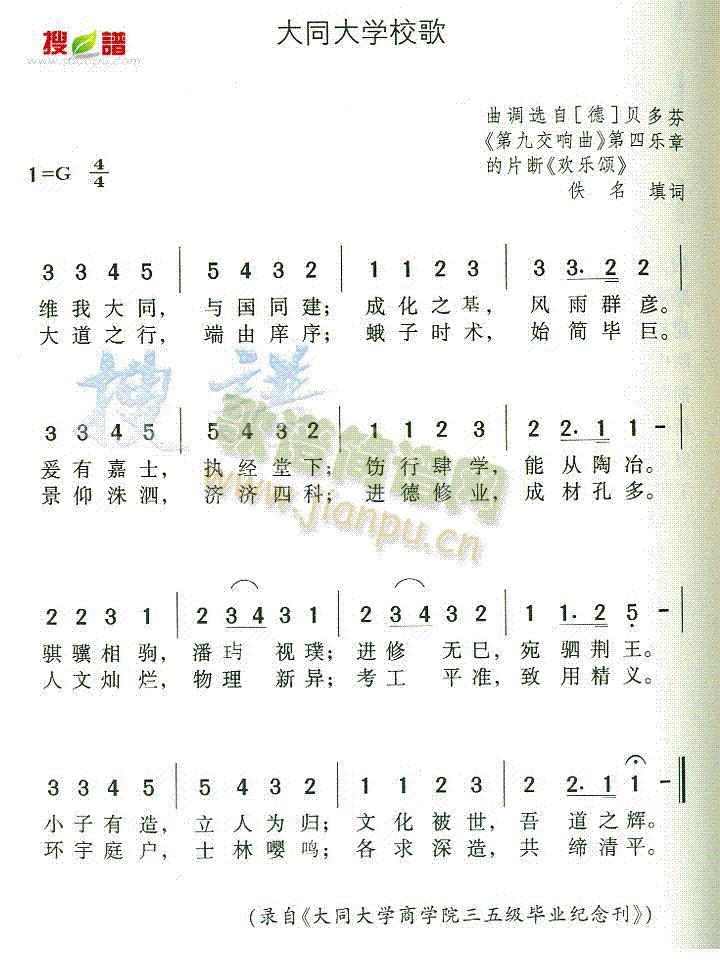 大同大学校歌
搜谱
www.sooopu.com
曲调选自[德]贝多芬
《第九交响曲》第四乐章
的片断《欢乐颂》
佚 名 填词
1=G 4/4
3 3 4 5 | 5 4 3 2 | 1 1 2 3 | 3 3. 2 2 |
维我大同, 与国同建; 成化之基, 风雨群彦。
大道之行, 端由庠序; 蛾子时术, 始简毕巨。
搜 谱
歌谱简谱网
www.jianpu.cn
3 3 4 5 | 5 4 3 2 | 1 1 2 3 | 2 2. 1 1 - |
爰有嘉士, 执经堂下; 饬行肆学, 能从陶冶。
景仰洙泗, 济济四科; 进德修业, 成材孔多。
2 2 3 1 | 2 3 4 3 1 | 2 3 4 3 2 | 1 1. 2 5 - |
骐骥相驹, 潘玙 视璞; 进修 无巳, 宛驷荆王。
人文灿烂, 物理 新异; 考工 平准, 致用精义。
3 3 4 5 | 5 4 3 2 | 1 1 2 3 | 2 2. 1 1 - ‖
小子有造, 立人为归; 文化被世, 吾 道之辉。
环宇庭户, 士林嘤鸣; 各求深造, 共 缔清平。
(录自《大同大学商学院三五级毕业纪念刊》)